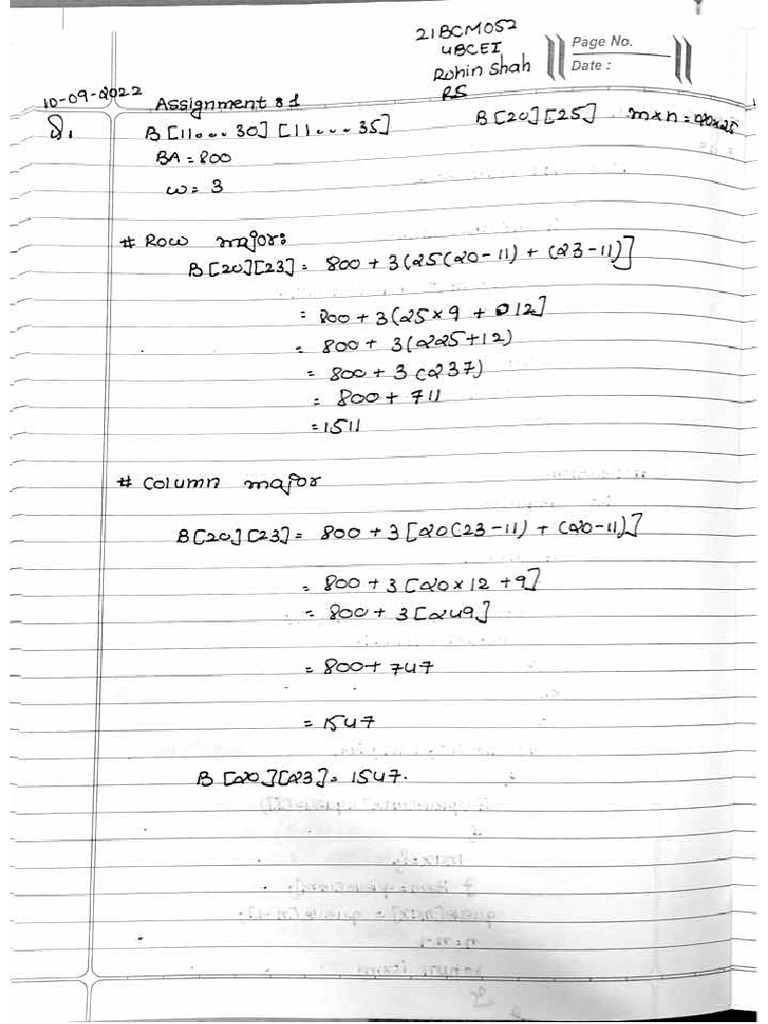 21BCM052
4BCEI
Rohin Shah
RS
Page No.
Date :
10-09-2022
Assignment : 1
Q.
B[11....30][11....35]
B[20][25] m×n = 20×25
BA = 800
w = 3
# Row major:
B[20][23] = 800 + 3(25(20-11) + (23-11)]
= 800 + 3(25×9 + 12]
= 800 + 3(225+12)
= 800 + 3(237)
= 800 + 711
= 1511
# Column major
B[20][23] = 800 + 3[20(23-11) + (20-11)]
= 800 + 3[20×12 +9]
= 800 + 3[249]
= 800+ 747
= 1547
B[20][23] = 1547.